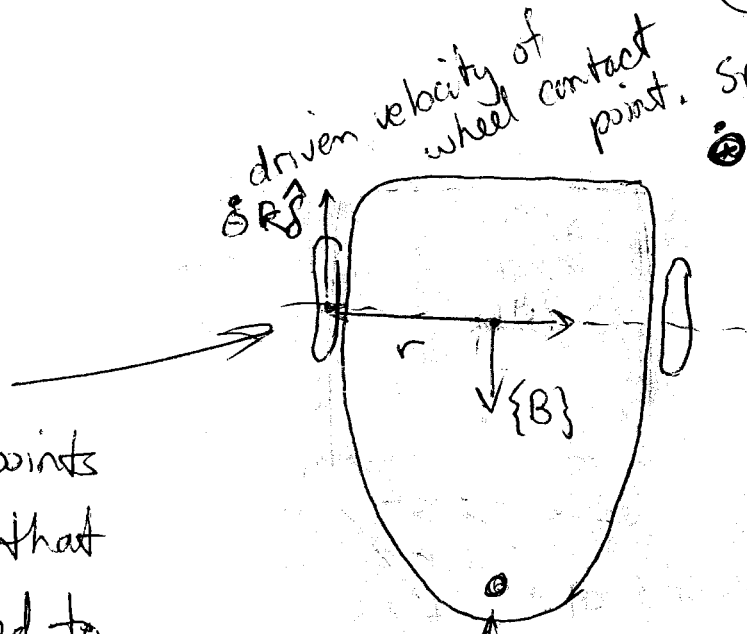 driven velocity of
wheel contact
point.
r
{B}
points
that